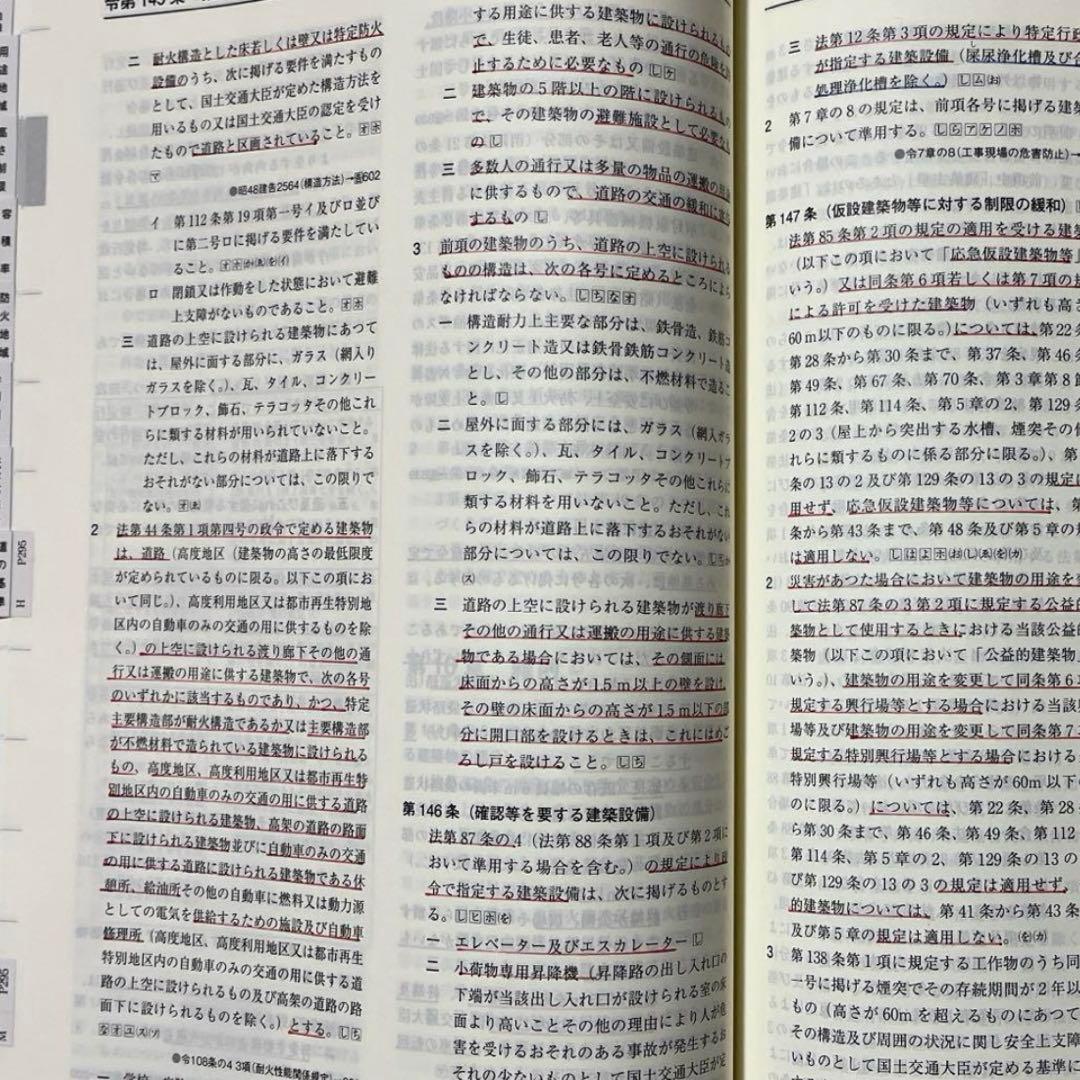 令第145条
二 耐火構造とした床若しくは壁又は特定防火
設備のうち、次に掲げる要件を満たすもの
として、国土交通大臣が定めた構造方法を
用いるもの又は国土交通大臣の認定を受け
たもので道路と区画されていること。オホ
マ
●昭48建告2564(構造方法)→告602
イ 第112条第19項第一号イ及びロ並び
に第二号ロに掲げる要件を満たしてい
ること。
ロ 閉鎖又は作動をした状態において避難
上支障がないものであること。オホ
三 道路の上空に設けられる建築物にあつて
は、屋外に面する部分に、ガラス(網入り
ガラスを除く。)、瓦、タイル、コンクリー
トブロック、飾石、テラコッタその他これ
らに類する材料が用いられていないこと。
ただし、これらの材料が道路上に落下する
おそれがない部分については、この限りで
ない。
2 法第44条第1項第四号の政令で定める建築物
は、道路(高度地区(建築物の高さの最低限度
が定められているものに限る。以下この項にお
いて同じ。)、高度利用地区又は都市再生特別地
区内の自動車のみの交通の用に供するものを除
く。)の上空に設けられる渡り廊下その他の通
行又は運搬の用途に供する建築物で、次の各号
のいずれかに該当するものであり、かつ、特定
主要構造部が耐火構造であるか又は主要構造部
が不燃材料で造られている建築物に設けられる
もの、高度地区、高度利用地区又は都市再生特
別地区内の自動車のみの交通の用に供する道路
の上空に設けられる建築物、高架の道路の路面
下に設けられる建築物並びに自動車のみの交通
の用に供する道路に設けられる建築物である休
憩所、給油所その他の自動車に燃料又は動力源
としての電気を供給するための施設及び自動車
修理所(高度地区、高度利用地区又は都市再生
特別地区内の自動車のみの交通の用に供する道
路の上空に設けられるもの及び高架の道路の路
面下に設けられるものを除く。)とする。しち
なオユスツ
●令108条の4 3項(耐火性能関係規定)
する用途に供する建築物に設けられるもの
で、生徒、患者、老人等の通行の危険を
止するために必要なもの しケ
二 建築物の5階以上の階に設けられるもの
で、その建築物の避難施設として必要なも
の し
三 多数人の通行又は多量の物品の運搬の用途
に供するもので、道路の交通の緩和に寄与
するもの し
3 前項の建築物のうち、道路の上空に設けられる
ものの構造は、次の各号に定めるところによら
なければならない。しちなオ
一 構造耐力上主要な部分は、鉄骨造、鉄筋コ
ンクリート造又は鉄骨鉄筋コンクリート造
とし、その他の部分は、不燃材料で造るこ
と。し
二 屋外に面する部分には、ガラス(網入ガラ
スを除く。)、瓦、タイル、コンクリートブ
ロック、飾石、テラコッタその他これらに
類する材料を用いないこと。ただし、これ
らの材料が道路上に落下するおそれがない
部分については、この限りでない。
(ス)
三 道路の上空に設けられる建築物が渡り廊下
その他の通行又は運搬の用途に供する建築
物である場合においては、その側面には
床面からの高さが1.5m以上の壁を設け、
その壁の床面からの高さが1.5m以下の部
分に開口部を設けるときは、これにはめご
ろし戸を設けること。しち
第146条(確認等を要する建築設備)
法第87条の4(法第88条第1項及び第2項に
おいて準用する場合を含む。)の規定により政
令で指定する建築設備は、次に掲げるものとす
る。しヒホ(を)
一 エレベーター及びエスカレーター し
二 小荷物専用昇降機(昇降路の出し入れ口の
下端が当該出し入れ口が設けられる室の床
面より高いことその他の理由により人が危
害を受けるおそれのある事故が発生するお
それの少ないものとして国土交通大臣が定
三 法第12条第3項の規定により特定行政
が指定する建築設備(屎尿浄化槽及び合
処理浄化槽を除く。)しム(お)
2 第7章の8の規定は、前項各号に掲げる建築
備について準用する。しらアケノホ
●令7章の8(工事現場の危害防止)→
第147条(仮設建築物等に対する制限の緩和)
法第85条第2項の規定の適用を受ける建築
(以下この項において「応急仮設建築物等」
いう。)又は同条第6項若しくは第7項の規
による許可を受けた建築物(いずれも高さ
60m以下のものに限る。)については、第22条
第28条から第30条まで、第37条、第46条
第49条、第67条、第70条、第3章第8節
第112条、第114条、第5章の2、第129条
2の3(屋上から突出する水槽、煙突その他
れらに類するものに係る部分に限る。)、第
条の13の2及び第129条の13の3の規定は
用せず、応急仮設建築物等については、第
条から第43条まで、第48条及び第5章の規
は適用しない。
2 災害があつた場合において建築物の用途を変
して法第87条の3第2項に規定する公益的
築物として使用するときにおける当該公益的
築物(以下この項において「公益的建築物」
いう。)、建築物の用途を変更して同条第6項
規定する興行場等とする場合における当該興
場等及び建築物の用途を変更して同条第7項
規定する特別興行場等とする場合における
特別興行場等(いずれも高さが60m以下
のに限る。)については、第22条、第28条
ら第30条まで、第46条、第49条、第112
第114条、第5章の2、第129条の13の
び第129条の13の3の規定は適用せず、
的建築物については、第41条から第43条
及び第5章の規定は適用しない。(を)(カ)
3 第138条第1項に規定する工作物のうち同
一号に掲げる煙突でその存続期間が2年以
もの(高さが60mを超えるものにあつて
その構造及び周囲の状況に関し安全上支障
いものとして国土交通大臣が定める基準に